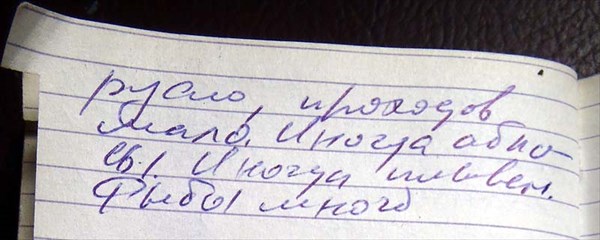 русло, проходов
мало. Иногда
Иногда плывем.
Рыбы много